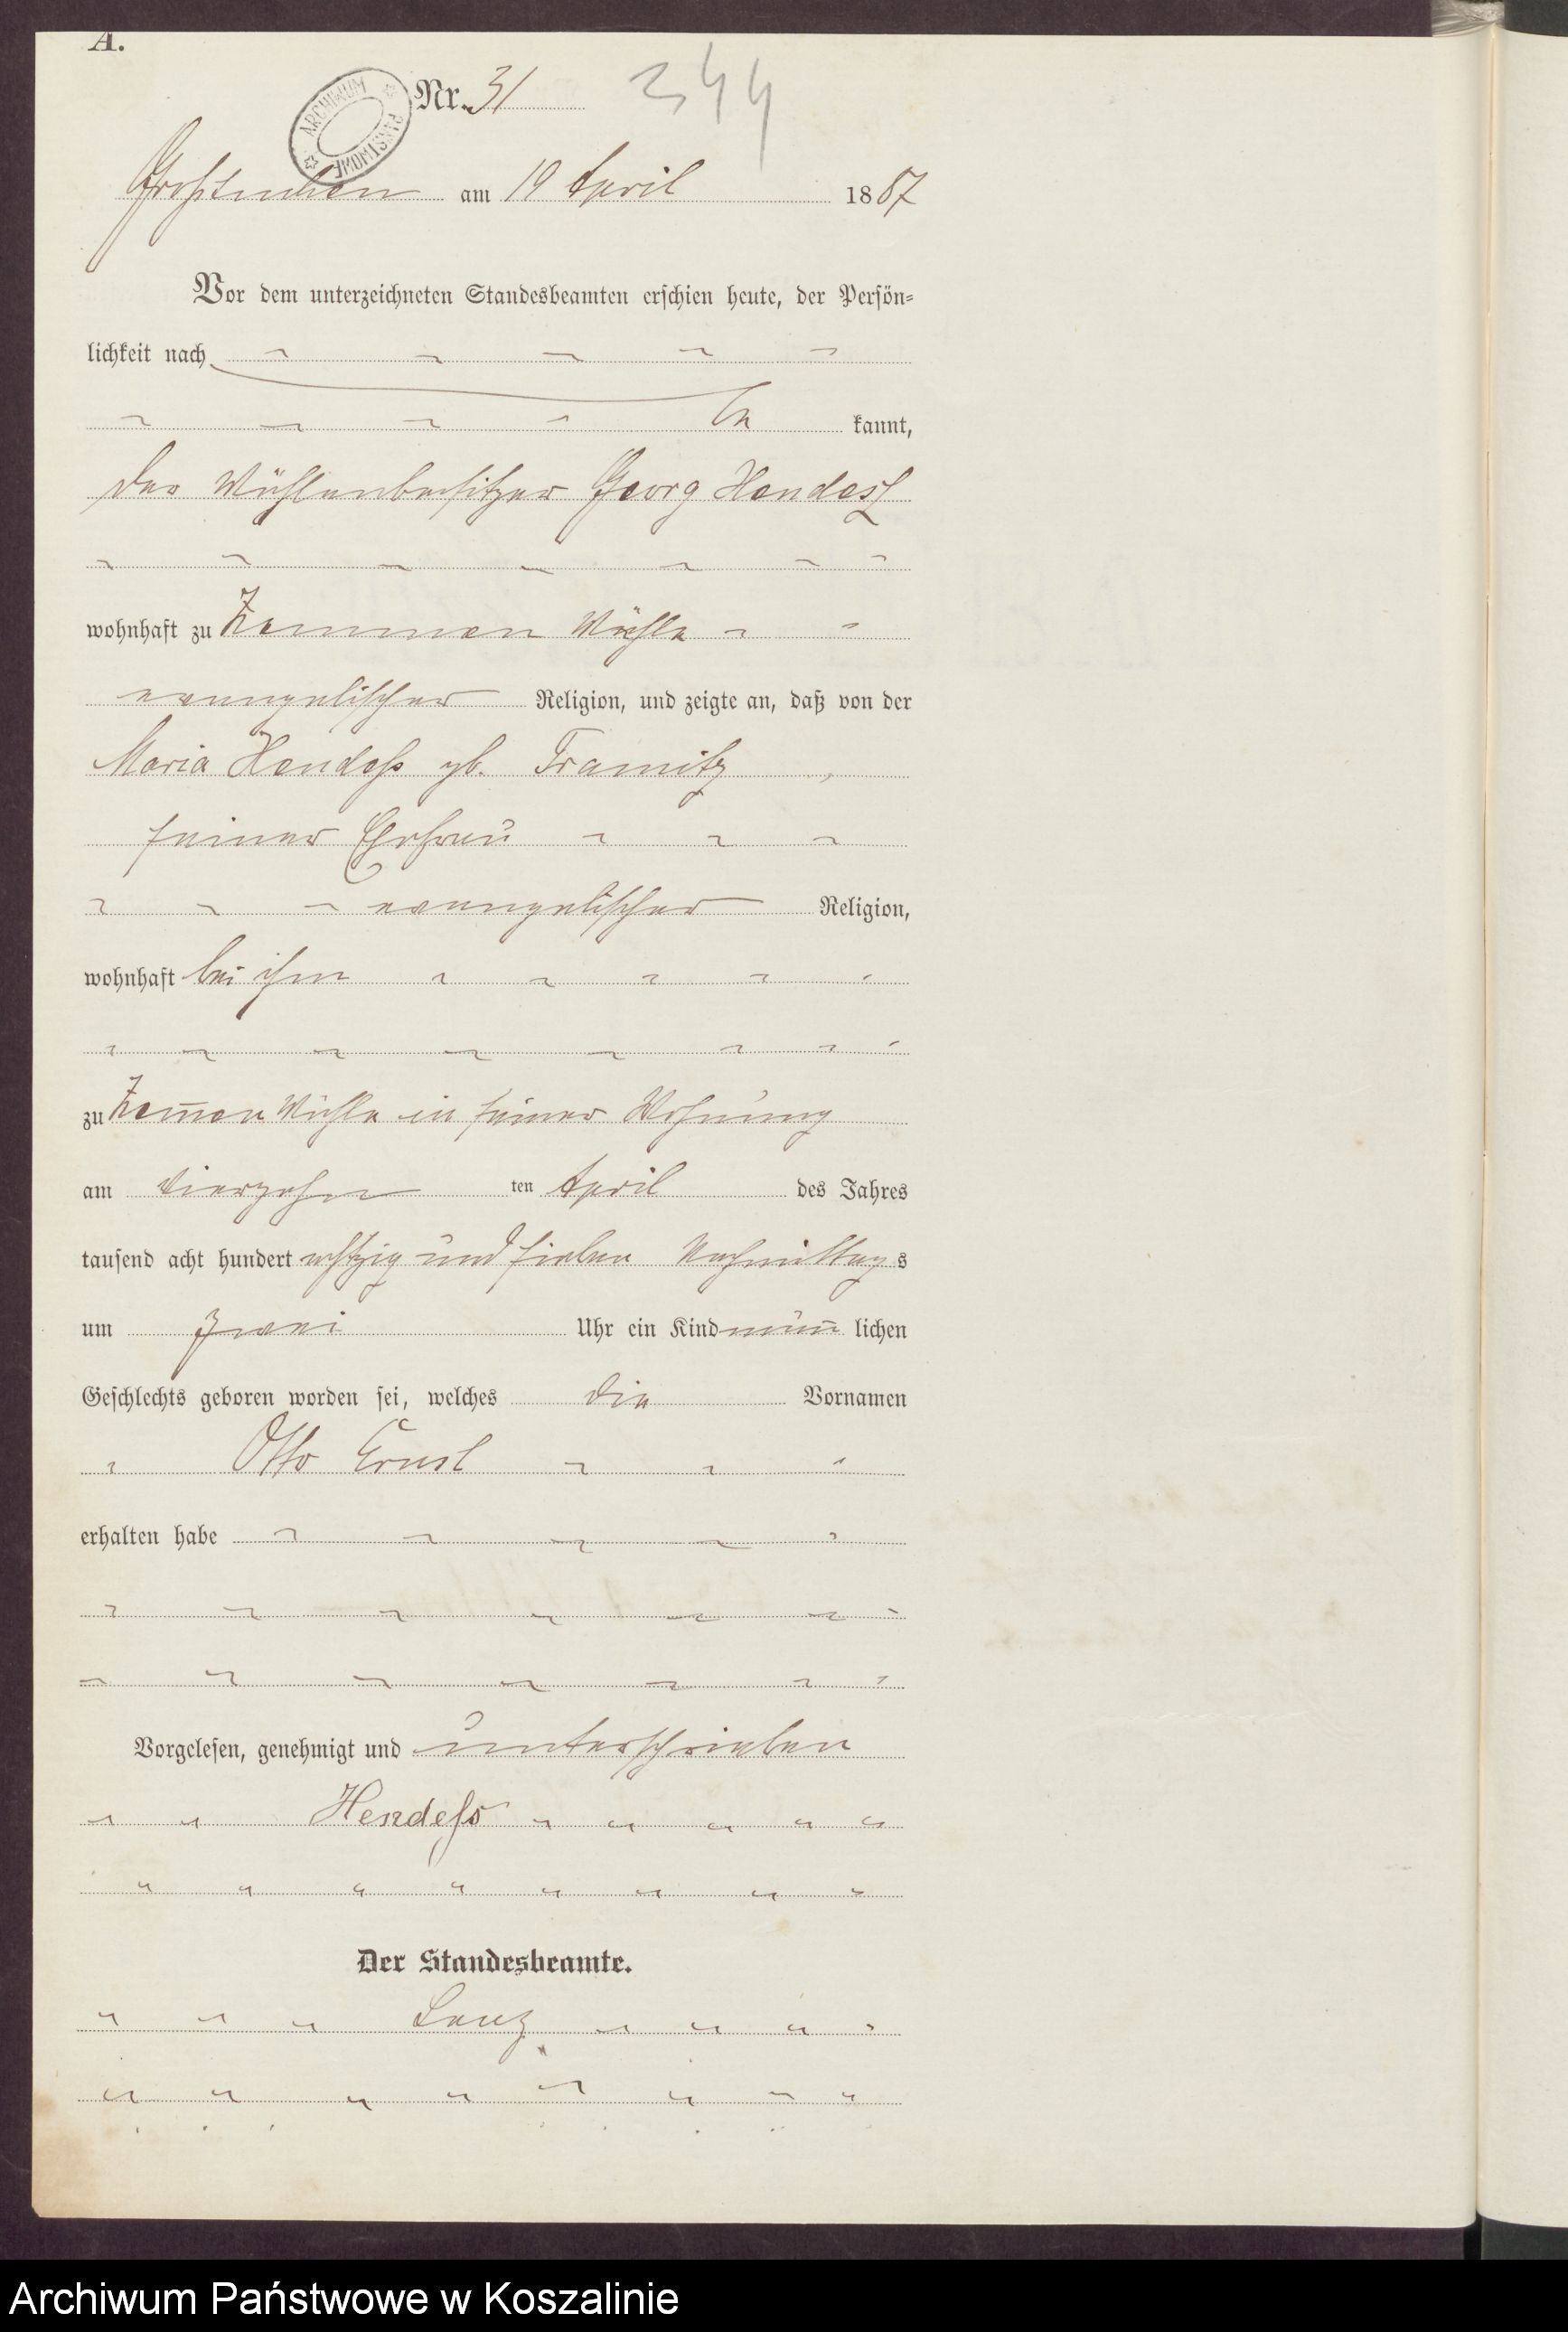 A.
ARCHIWUM PAŃSTWOWE
Nr. 31 344
Großtuchen am 19 April 1887
Vor dem unterzeichneten Standesbeamten erschien heute, der Persön-
lichkeit nach
be kannt,
der Mühlenbesitzer Georg Hendess
wohnhaft zu Zemmen Mühle
evangelischer Religion, und zeigte an, daß von der
Maria Hendeß gb. Tramitz,
seiner Ehefrau
evangelischer Religion,
wohnhaft bei ihm
zu Zem̄en Mühle in seiner Wohnung
am vierzehn ten April des Jahres
tausend acht hundert achtzig und sieben Nachmittags
um zwei Uhr ein Kind män̄ lichen
Geschlechts geboren worden sei, welches die Vornamen
Otto Ernst
erhalten habe
Vorgelesen, genehmigt und unterschrieben
Hendeß
Der Standesbeamte.
Lenz
Archiwum Państwowe w Koszalinie